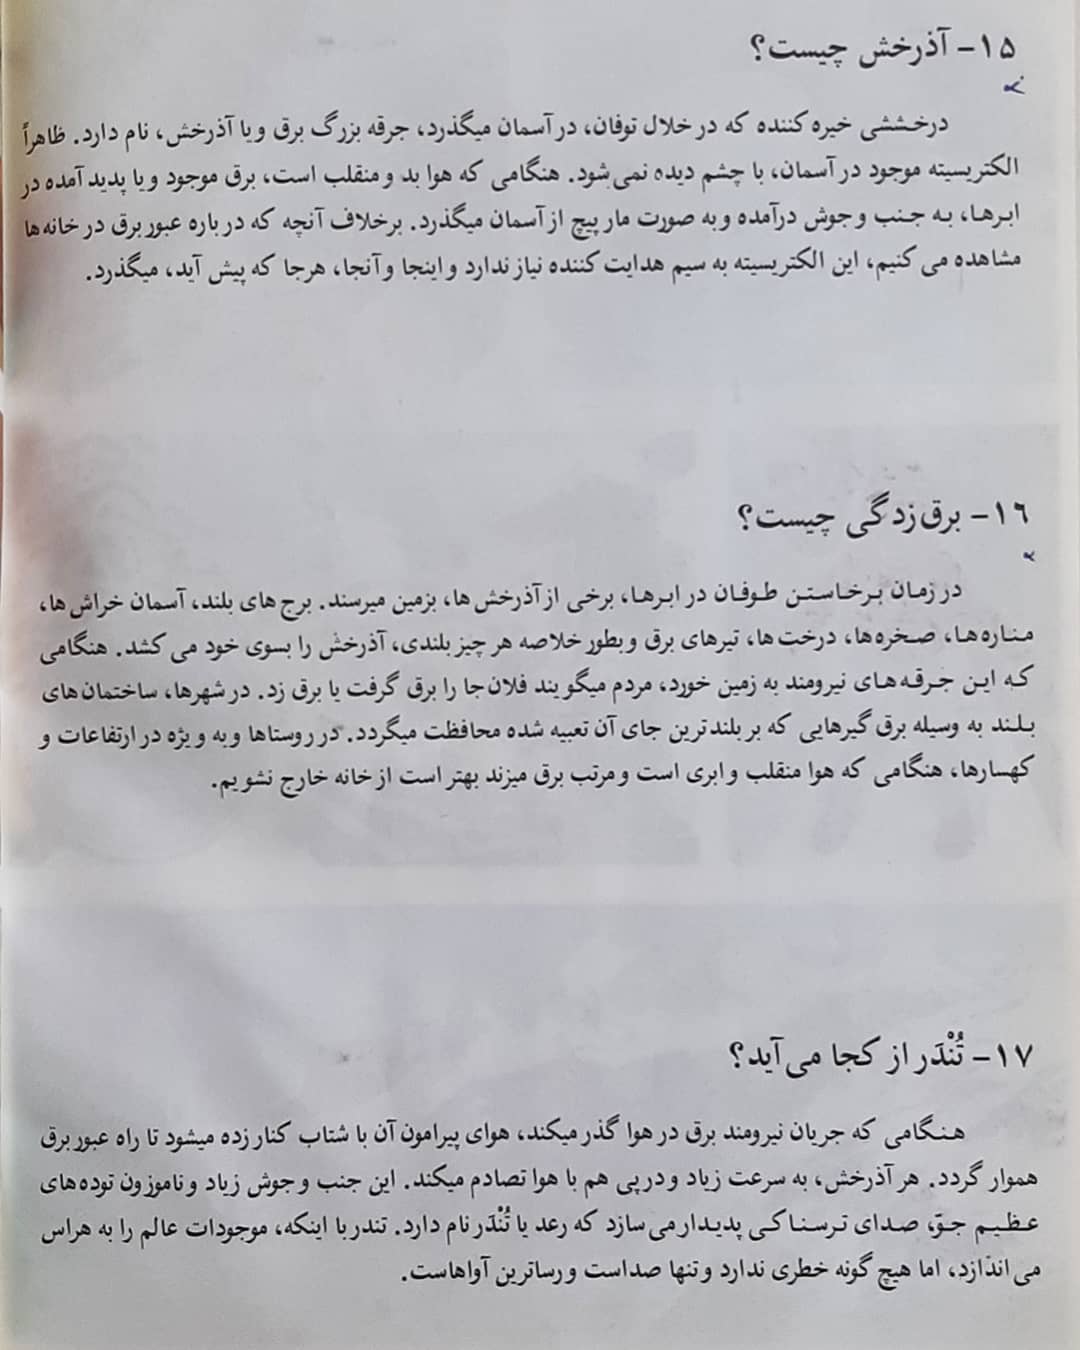 ۱۵- آذرخش چیست؟
درخششی خیره کننده که در خلال توفان، در آسمان میگذرد، جرقه بزرگ برق و یا آذرخش، نام دارد. ظاهراً
الکتریسیته موجود در آسمان، با چشم دیده نمی شود. هنگامی که هوا بد و منقلب است، برق موجود و یا پدید آمده در
ابرها، به جنب و جوش درآمده و به صورت مار پیچ از آسمان میگذرد. برخلاف آنچه که در باره عبور برق در خانه ها
مشاهده می کنیم، این الکتریسیته به سیم هدایت کننده نیاز ندارد و اینجا و آنجا، هرجا که پیش آید، میگذرد.
۱۶- برق زدگی چیست؟
در زمان برخاستن طوفان در ابرها، برخی از آذرخش ها، بزمین میرسند. برج های بلند، آسمان خراش ها،
مناره ها، صخره ها، درخت ها، تیرهای برق و بطور خلاصه هر چیز بلندی، آذرخش را بسوی خود می کشد. هنگامی
که این جرقه های نیرومند به زمین خورد، مردم میگویند فلان جا را برق گرفت یا برق زد. در شهرها، ساختمان های
بلند به وسیله برق گیرهایی که بر بلندترین جای آن تعبیه شده محافظت میگردد. در روستاها و به ویژه در ارتفاعات و
کهسارها، هنگامی که هوا منقلب و ابری است و مرتب برق میزند بهتر است از خانه خارج نشویم.
۱۷- تُنْدَر از کجا می آید؟
هنگامی که جریان نیرومند برق در هوا گذر میکند، هوای پیرامون آن با شتاب کنار زده میشود تا راه عبور برق
هموار گردد. هر آذرخش، به سرعت زیاد و در پی هم با هوا تصادم میکند. این جنب و جوش زیاد و ناموزون توده های
عظیم جوّ، صدای ترسناکی پدیدار می سازد که رعد یا تُنْدَر نام دارد. تندر با اینکه، موجودات عالم را به هراس
می اندازد، اما هیچ گونه خطری ندارد و تنها صداست و رساترین آواهاست.